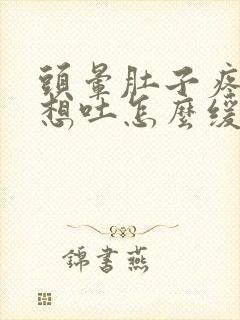 頭暈肚子疼
想吐怎麼緩
錦書燕